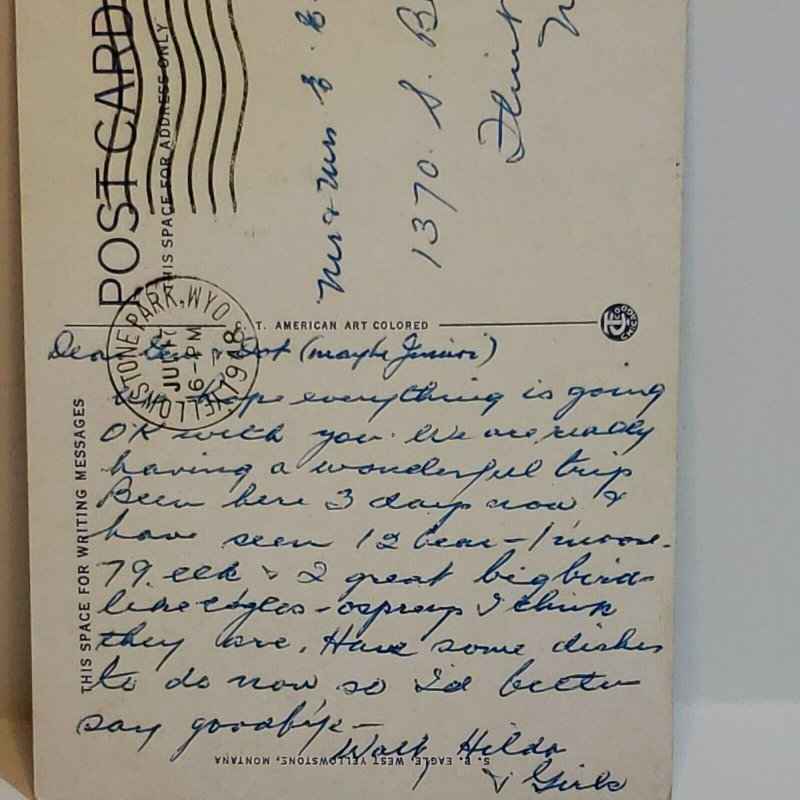 POST CARD
THIS SPACE FOR ADDRESS ONLY
Mr & Mrs
1370 S. B
Flint
YELLOWSTONE PARK, WYO.
6-PM
1948
C. T. AMERICAN ART COLORED
THIS SPACE FOR WRITING MESSAGES
Dear & Dot (maybe Junior)
We hope everything is going
OK with you. We are really
having a wonderful trip
Been here 3 days now &
have seen 12 bear - 1 moose.
79 elk & 2 great big birds
like eagles - ospreys I think
they are. Have some dishes
to do now so I'd better
say goodbye -
Walt, Hilda
& Girls
EAGLE, WEST YELLOWSTONE, MONTANA